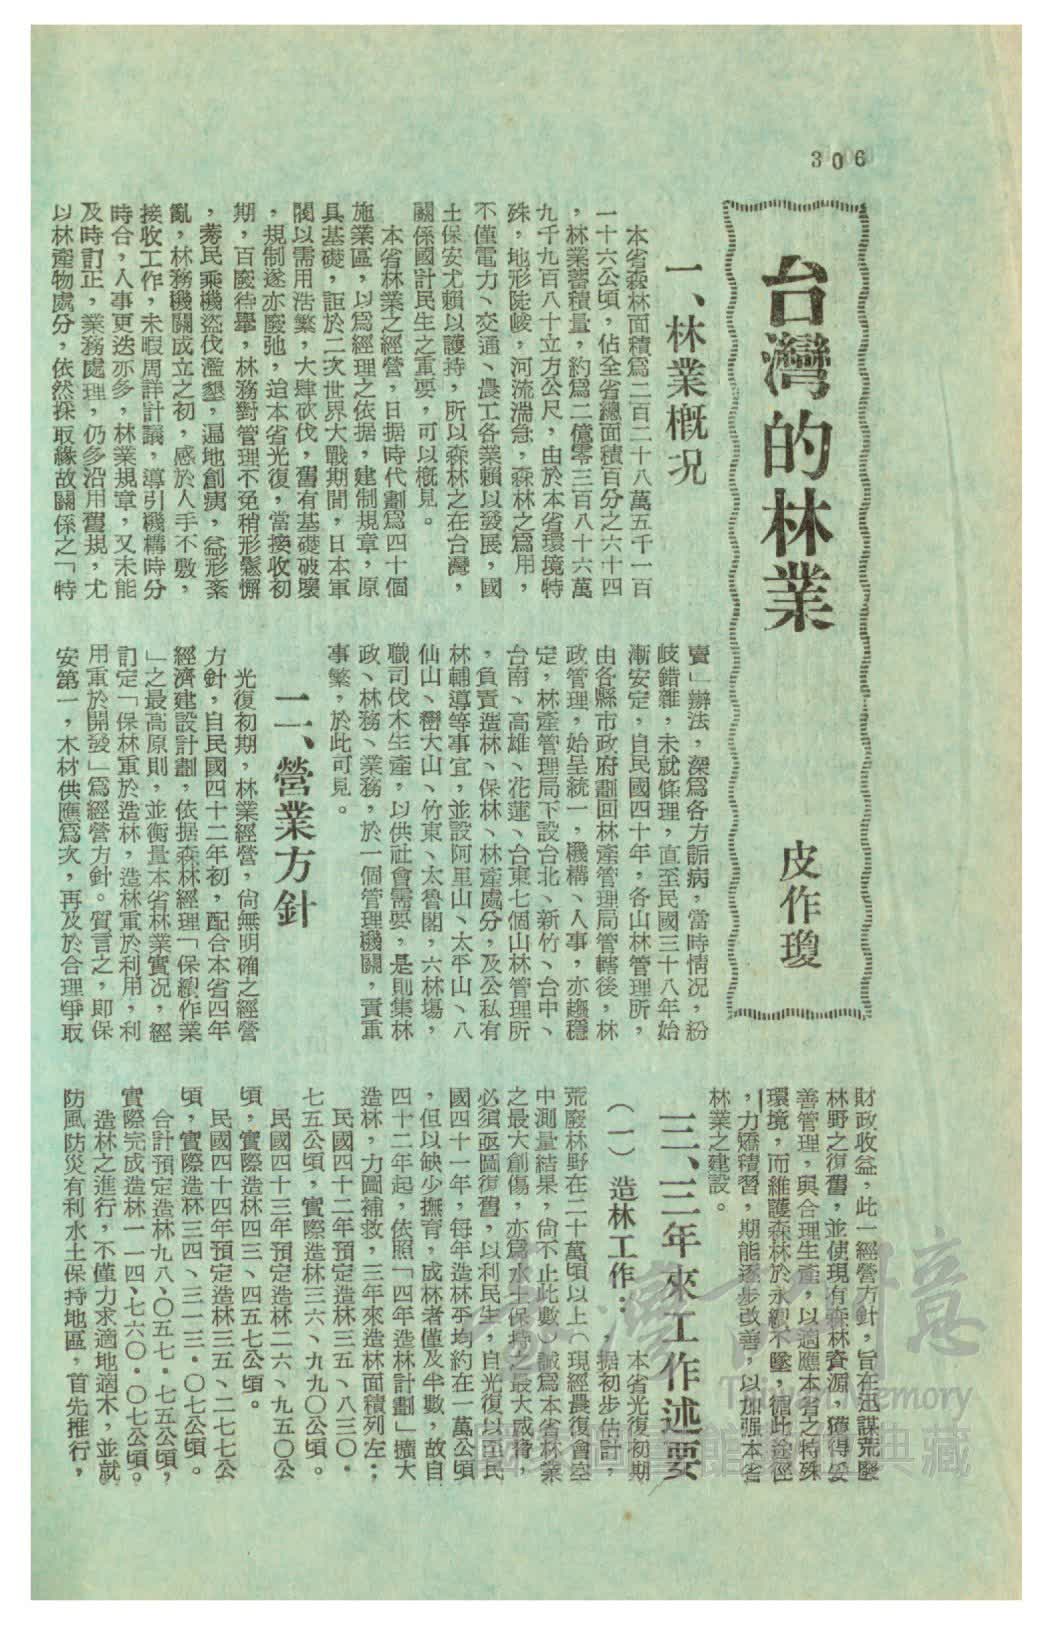 306
台灣的林業
皮作瓊
一、林業概况
本省森林面積爲二百二十八萬五千一百
一十六公頃，佔全省總面積百分之六十四
，林業蓄積量，約爲二億零三百八十六萬
九千九百八十立方公尺，由於本省環境特
殊，地形陡峻，河流湍急，森林之爲用，
不僅電力、交通、農工各業賴以發展，國
土保安尤賴以護持，所以森林之在台灣，
關係國計民生之重要，可以概見。
本省林業之經營，日据時代劃爲四十個
施業區，以爲經理之依据，建制規章，原
具基礎，詎於二次世界大戰期間，日本軍
閥以需用浩繁，大肆砍伐，舊有基礎破壞
，規制遂亦廢弛，迨本省光復，當接收初
期，百廢待舉，林務對管理不免稍形鬆懈
，莠民乘機盜伐濫墾，遍地創痍，益形紊
亂，林務機關成立之初，感於人手不敷，
接收工作，未暇周詳計議，導引機構時分
時合，人事更迭亦多，林業規章，又未能
及時訂正，業務處理，仍多沿用舊規，尤
以林產物處分，依然採取緣故關係之「特
賣」辦法，深爲各方詬病，當時情况，紛
岐錯雜，未就條理，直至民國三十八年始
漸安定，自民國四十年，各山林管理所，
由各縣市政府劃回林產管理局管轄後，林
政管理，始呈統一，機構、人事，亦趨穩
定，林產管理局下設台北、新竹、台中、
台南、高雄、花蓮、台東七個山林管理所
，負責造林、保林、林產處分，及公私有
林輔導等事宜，並設阿里山、太平山、八
仙山、巒大山、竹東、太魯閣，六林場，
職司伐木生產，以供社會需要，是則集林
政、林務、業務，於一個管理機關，責重
事繁，於此可見。
二、營業方針
光復初期，林業經營，尙無明確之經營
方針，自民國四十二年初，配合本省四年
經濟建設計劃，依据森林經理「保續作業
」之最高原則，並衡量本省林業實况，經
訂定「保林重於造林，造林重於利用，利
用重於開發」爲經營方針。質言之，即保
安第一，木材供應爲次，再及於合理爭取
財政收益，此一經營方針，旨在迅謀荒廢
林野之復舊，並使現有森林資源，獲得妥
善管理，與合理生產，以適應本省之特殊
環境，而維護森林於永續不墜，循此途徑
，力矯積習，期能逐步改善，以加强本省
林業之建設。
三、三年來工作述要
（一）造林工作：本省光復初期
，据初步估計，
荒廢林野在二十萬頃以上（現經農復會空
中測量結果，尙不止此數）誠爲本省林業
之最大創傷，亦爲水土保持之最大威脅，
必須亟圖復舊，以利民生，自光復以至民
國四十一年，每年造林平均約在一萬公頃
，但以缺少撫育，成林者僅及半數，故自
四十二年起，依照「四年造林計劃」擴大
造林，力圖補救，三年來造林面積列左：
民國四十二年預定造林三五、八三〇・
七五公頃，實際造林三六、九九〇公頃。
民國四十三年預定造林二六、九五〇公
頃，實際造林四三、四五七公頃。
民國四十四年預定造林三五、二七七公
頃，實際造林三四、三一三・〇七公頃。
合計預定造林九八、〇五七・七五公頃，
實際完成造林一一四、七六〇・〇七公頃。
造林之進行，不僅力求適地適木，並就
防風防災有利水土保持地區，首先推行，
臺灣記憶
Taiwan Memory
國家圖書館數位典藏